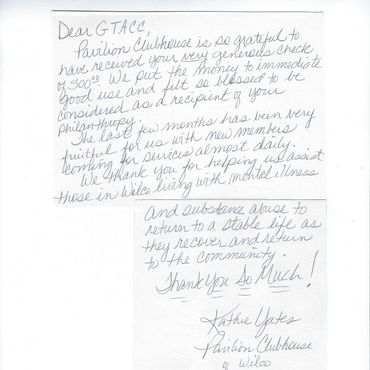 Dear GTACC,
Pavilion Clubhouse is so grateful to
have received your very generous check
of 500.00. We put the money to immediate
good use and felt so blessed to be
considered as a recipient of your
philanthropy.
The last few months has been very
fruitful for us with new members
coming for services almost daily.
We thank you for helping us assist
those in Wilco living with mental illness
and substance abuse to
return to a stable life as
they recover and return
to the community.
Thank You So Much!
Kathie Yates
Pavilion Clubhouse
of Wilco